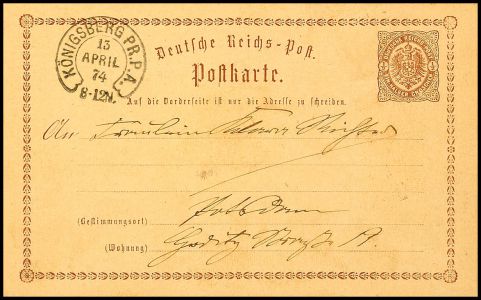 KÖNIGSBERG PR. P.A.
13
APRIL
74
8-12N.
Deutsche Reichs-Post.
Postkarte.
Auf die Vorderseite ist nur die Adresse zu schreiben.
An Fräulein Clara Richter
Potsdam
(Bestimmungsort)
(Wohnung)